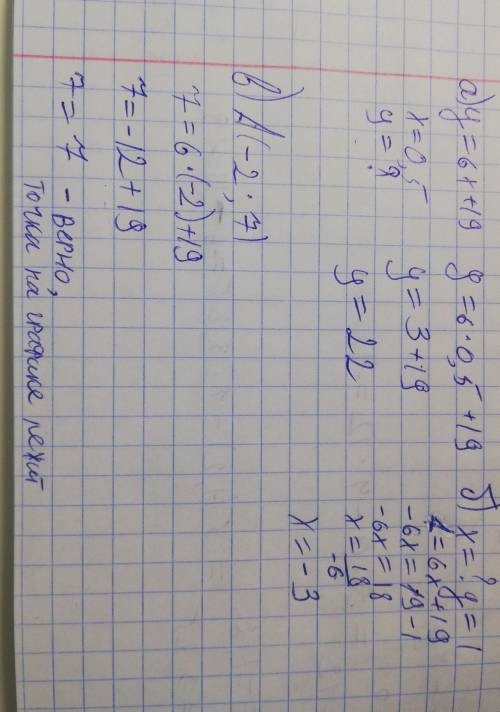 а) y = 6x + 19
x = 0,5
y = ?
y = 6 · 0,5 + 19
y = 3 + 19
y = 22
б) x = ? y = 1
1 = 6x + 19
-6x = 19 - 1
-6x = 18
x = 18/-6
x = -3
в) A(-2; 7)
7 = 6 · (-2) + 19
7 = -12 + 19
7 = 7 - верно,
точка на графике лежит